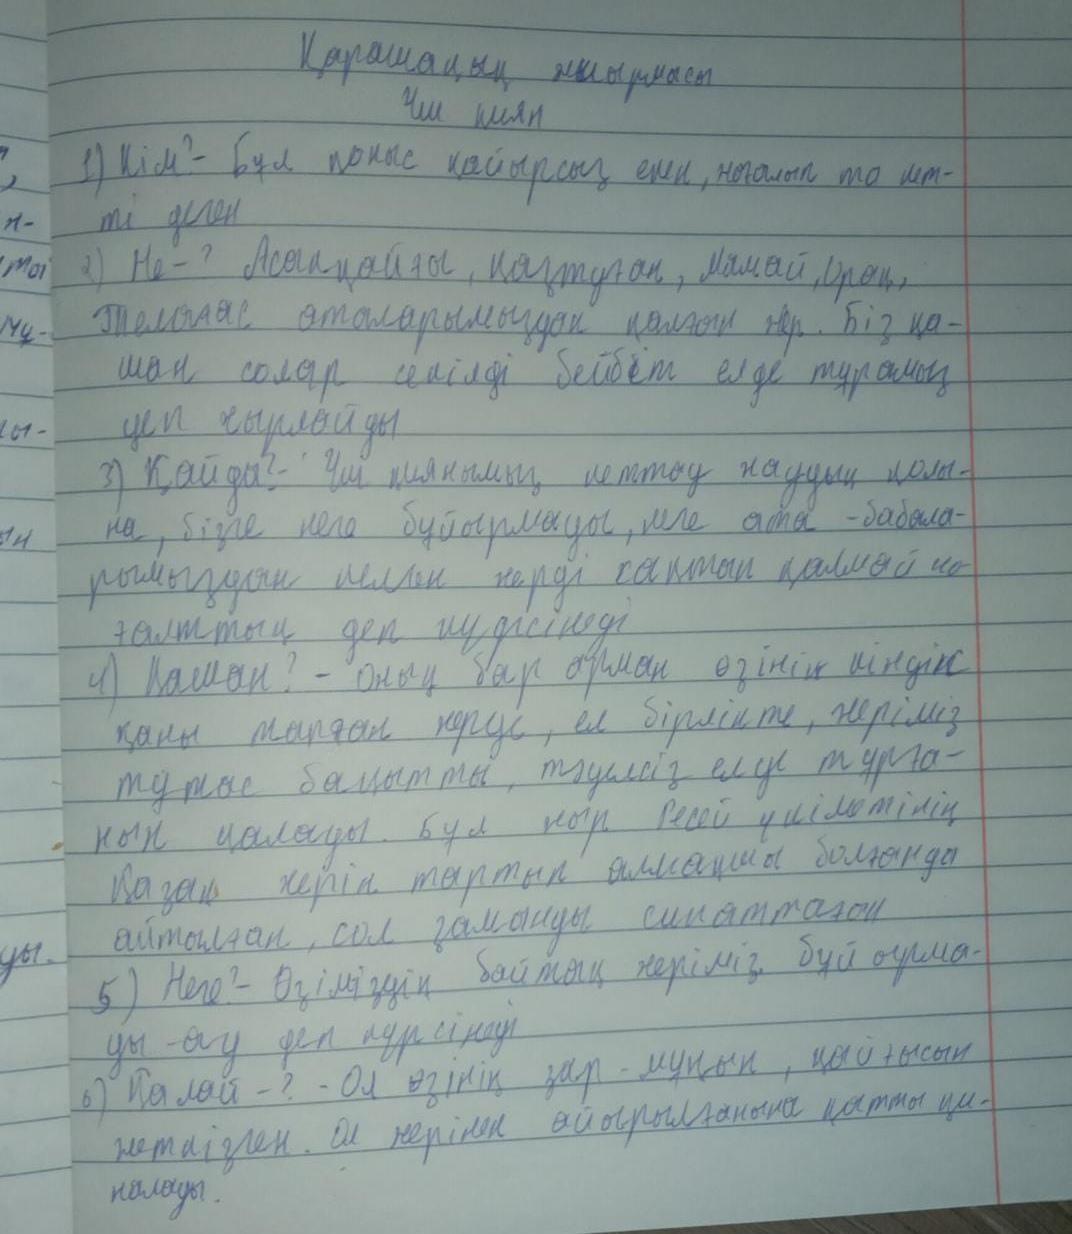 Қарашаның жиырмасы
Үш қиян
1) Кім? - Бұл қоныс қайырсыз екен, ноғалып та кет-
ті деген
2) Не - ? Асанқайғы, Қазтуған, Мамай, Орақ,
Телағыс аталарымыздан қалған жер. Біз қа-
шан солар секілді бейбіт елде тұрамыз
деп жырлайды
3) Қайда? - Үш қиянымыз кеттау жаудың қолы-
на, бізге неге бұйырмады, неге ата - бабала-
рымыздан келген жерді сақтап қалмай но
ғалттық деп күрсінеді
4) Қашан? - Оның бар арман өзінің кіндік
қаны тамған жерде, ел бірлікте, жеріміз
тұтас бақытты, тәуелсіз елде тұрға-
нын қалады. Бұл жыр Ресей үкіметінің
Қазақ жерін тартып алмақшы болғанда
айтылған, сол заманды сипаттаған
5) Неге? - Өзіміздің байтақ жеріміз бұйырма-
ды -ау деп күрсінеді
6) Қалай - ? - Ол өзінің зар - мұңын, қайғысын
жеткізген. Ол жерінен айырылғанына қатты қи-
налады.